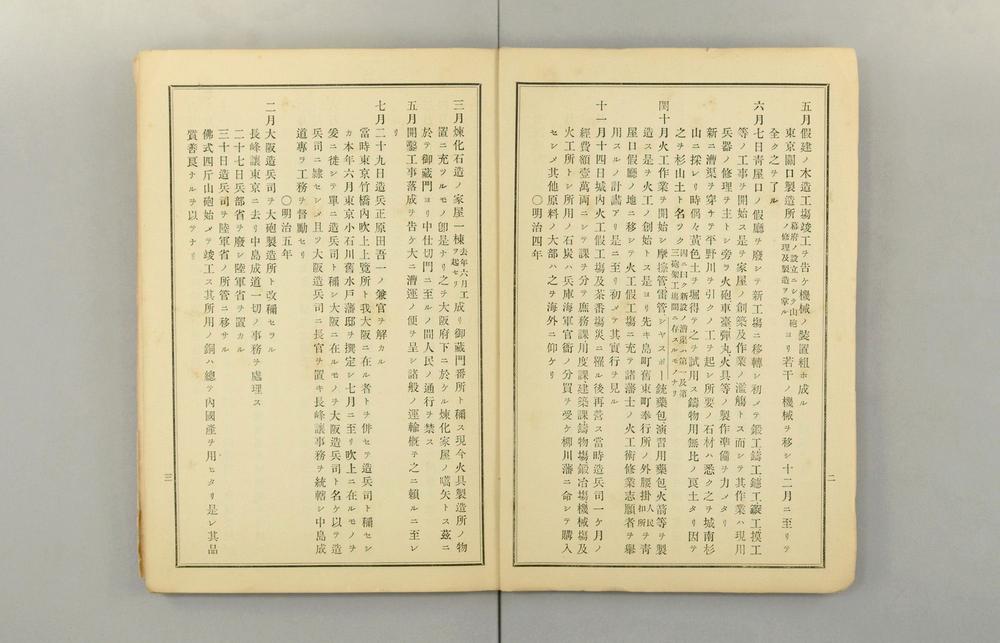 五月假建ノ木造工塲竣工ヲ吿ケ機械ノ裝置粗ホ成ル
東京關口製造所幕府ノ設立ニシテ山砲ノ修理及製造ヲ掌ルヨリ若干ノ機械ヲ移シ十二月ニ至リテ
全ク之ヲ了ル
六月七日靑屋口ノ假廳ヲ廢シテ新工塲ニ移轉シ初メテ鍛工鑄工鑢工鋑工摸工
等ノ工事ヲ開始ス是ヲ家屋ノ創築及作業ノ濫觴トス而シテ其作業ハ現用
兵器ノ修理ヲ主トシ旁ラ火砲車臺彈丸火具等ノ製作準備ヲ力メタリ
新ニ漕渠ヲ穿チテ平野川ヲ引クノ工ヲ起シ所要ノ石材ハ悉ク之ヲ城南杉
山ニ採レリ時偶々黃色土ヲ堀得テ之ヲ試用ス鑄物用無比ノ良土タリ因テ
之ヲ杉山土ト名ツク因ニ曰ク新設ノ漕渠ハ第一及第三砲架工塲間ニ存スルモノナリ
閏十月火工作業ヲ開始シ摩擦管雷管シヤスポー銃藥包演習用藥包火箭等ヲ製
造ス是ヲ火工ノ創始トス是ヨリ先キ島町舊東町奉行所ノ外腰掛人民扣所ヲ靑
屋口假廳ノ地ニ移シテ火工假工塲ニ充テ諸藩士ノ火工術修業志願者ヲ擧
用スルノ計畫アリ是ニ至リ初メテ其實行ヲ見ル
十一月十四日城內火工假工塲及茶番塲災ニ罹ル後再營ス當時造兵司一ケ月ノ
經費額壹萬兩ニシテ課ヲ分テ庶務課用度課建築課鑄物塲鍛冶塲機械塲及
火工所トシ所用ノ石炭ハ兵庫海軍官衙ノ分買ヲ受ケ柳川藩ニ命シテ購入
セシメ其他原料ノ大部ハ之ヲ海外ニ仰ケリ
〇明治四年
二
三月煉化石造ノ家屋一棟去年六月工ヲ起セリ成リ御藏門番所ト稱ス現今火具製造所ノ物
置ニ充ツルモノ卽是ナリ之ヲ大阪府下ニ於ケル煉化家屋ノ嚆矢トス茲ニ
於テ御藏門ヨリ中仕切門ニ至ルノ間人民ノ通行ヲ禁ス
五月開鑿工事落成ヲ吿ケ大ニ漕運ノ便ヲ呈シ諸般ノ運輸槪子之ニ賴ルニ至レ
リ
七月二十九日造兵正原田吾一ノ兼官ヲ解カル
當時東京竹橋內吹上上覽所ト我大阪ニ在ル者トヲ併セテ造兵司ト稱セシ
カ本年六月東京小石川舊水戶藩邸ヲ撰定シ七月ニ至リ吹上ニ在ルモノヲ
爰ニ徙シテ單ニ造兵司ト稱シ大阪ニ在ルモノヲ大阪造兵司ト名ケ以テ造
兵司ニ隸セシメ且ツ大阪造兵司ニ長官ヲ置キ長峰讓事務ヲ統轄シ中島成
道專ラ工務ヲ督勵セリ
〇明治五年
二月大阪造兵司ヲ大砲製造所ト改稱セラル
長峰讓東京ニ去リ中島成道一切ノ事務ヲ處理ス
二十七日兵部省ヲ廢シ陸軍省ヲ置カル
三十日造兵司ヲ陸軍省ノ所管ニ移サル
佛式四斤山砲始メテ竣工ス其所用ノ銅ハ總テ內國產ヲ用ヒタリ是レ其品
質善良ナルヲ以テナリ
三